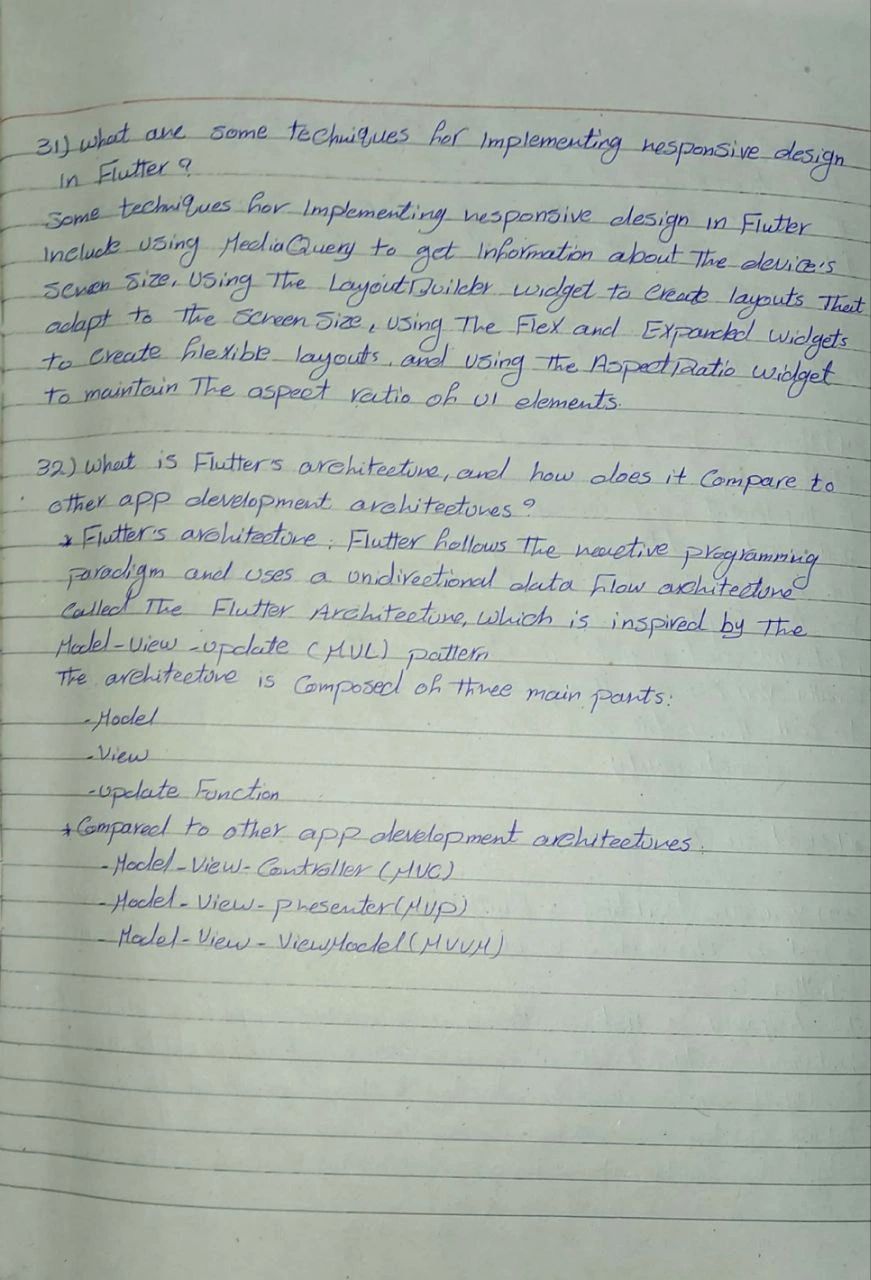 31) What are some techniques for Implementing responsive design
in Flutter?
Some techniques for Implementing responsive design in Flutter
Include using MediaQuery to get Information about The device's
screen size, Using The LayoutBuilder widget to Create layouts That
adapt to the Screen Size, using The Flex and Expanded widgets
to Create flexible layouts, and using the AspectRatio widget
to maintain The aspect ratio of UI elements.
32) What is Flutter's architecture, and how does it Compare to
other app development architectures?
* Flutter's architecture: Flutter follows The reactive programming
paradigm and uses a unidirectional data flow architecture
Called The Flutter Architecture, which is inspired by The
Model-View-update (MUL) pattern
The architecture is Composed of three main parts:
- Model
- View
- update Function
* Compared to other app development architectures:
- Model-View-Controller (MVC)
- Model-View-presenter (MVP)
- Model-View-ViewModel (MVVM)